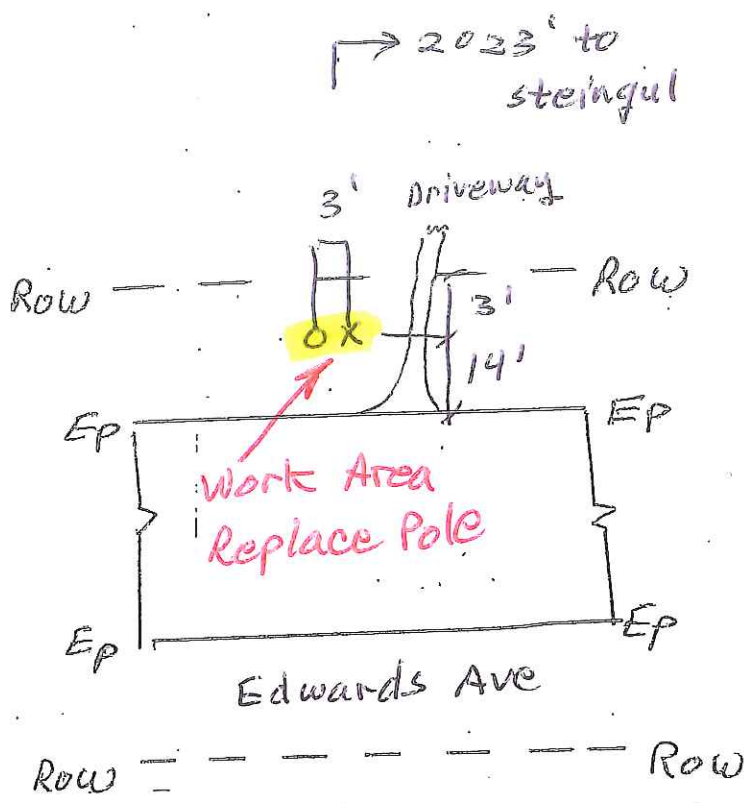 2023' to
steingul
3' Driveway
Row Row
3'
O X
14'
Ep Ep
Work Area
Replace Pole
Ep Ep
Edwards Ave
Row Row